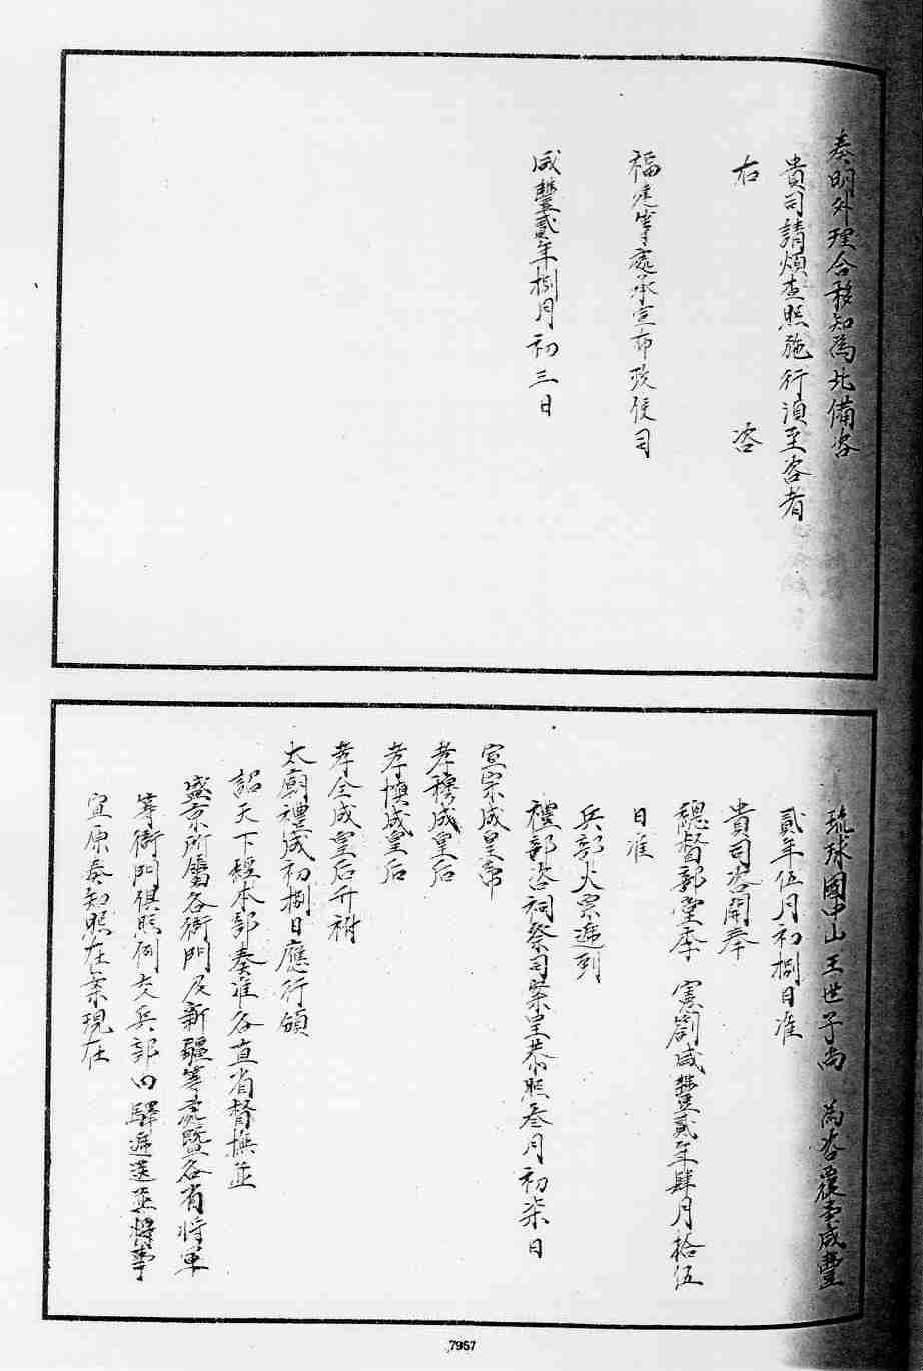 奏明外理合移知為此備咨
貴司請煩查照施行須至咨者
右　　咨
福建等處承宣布政使司
咸豐貳年捌月初三日
琉球國中山王世子尚　為咨覆事咸豐
貳年伍月初捌日准
貴司咨開奉
總督部堂季　憲劄咸豐貳年肆月拾伍
日准
兵部火票遞到
禮部咨祠祭司案呈恭照叁月初柒日
宣宗成皇帝
孝穆成皇后
孝慎成皇后
孝全成皇后升祔
太廟禮成初捌日應行頒
詔天下經本部奏准各直省督撫並
盛京所屬各衙門及新疆等處暨各省將軍
等衙門俱照例交兵部由驛遞送並將事
宜原奏知照在案現在
7957